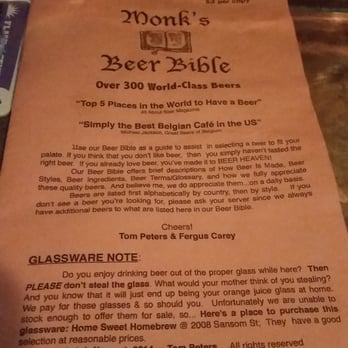 $3 per copy
Monk's
Beer Bible
Over 300 World-Class Beers
"Top 5 Places in the World to Have a Beer"
All About Beer Magazine
"Simply the Best Belgian Café in the US"
Michael Jackson, Great Beers of Belgium
Use our Beer Bible as a guide to assist in selecting a beer to fit your
palate. If you think that you don't like beer, then you simply haven't tasted the
right beer. If you already love beer, you've made it to BEER HEAVEN!
Our Beer Bible offers brief descriptions of How Beer Is Made, Beer
Styles, Beer Ingredients, Beer Terms/Glossary, and how we fully appreciate
these quality beers. And believe me, we do appreciate them...on a daily basis.
Beers are listed first alphabetically by country, then by style. If you
don't see a beer you're looking for, please ask your server since we always
have additional beers to what are listed here in our Beer Bible.
Cheers!
Tom Peters & Fergus Carey
GLASSWARE NOTE:
Do you enjoy drinking beer out of the proper glass while here? Then
PLEASE don't steal the glass. What would your mother think of you stealing?
And you know that it will just end up being your orange juice glass at home.
We pay for these glasses & so should you. Unfortunately we are unable to
stock enough to offer them for sale, so... Here's a place to purchase this
glassware: Home Sweet Homebrew @ 2008 Sansom St; They have a good
selection at reasonable prices.
Tom Peters All rights reserved